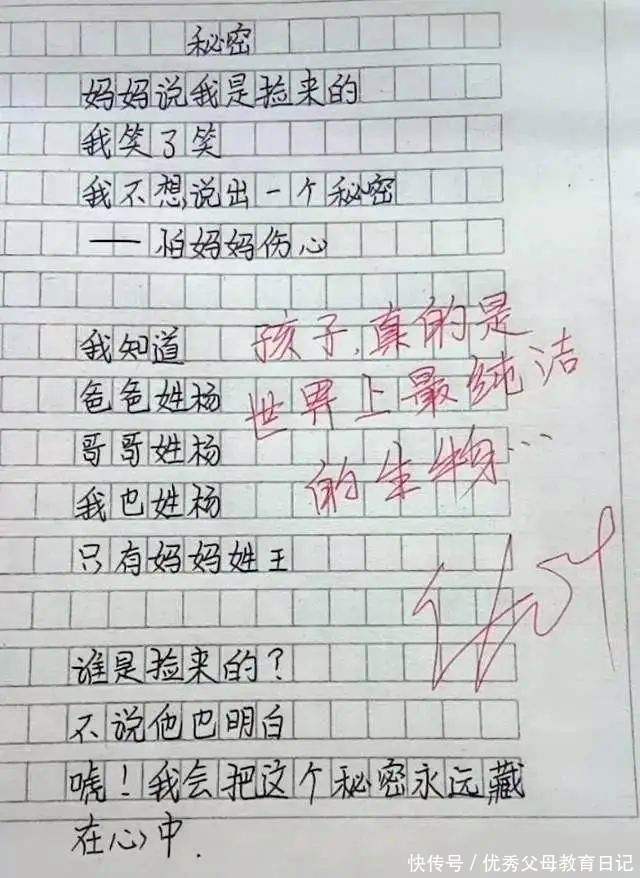 秘密
妈妈说我是捡来的
我笑了笑
我不想说出一个秘密
——怕妈妈伤心
我知道
爸爸姓杨
哥哥姓杨
我也姓杨
只有妈妈姓王
谁是捡来的?
不说他也明白
唬！我会把这个秘密永远藏
在心中.
孩子,真的是
世界上最纯洁
的生物…
快传号／优秀父母教育日记